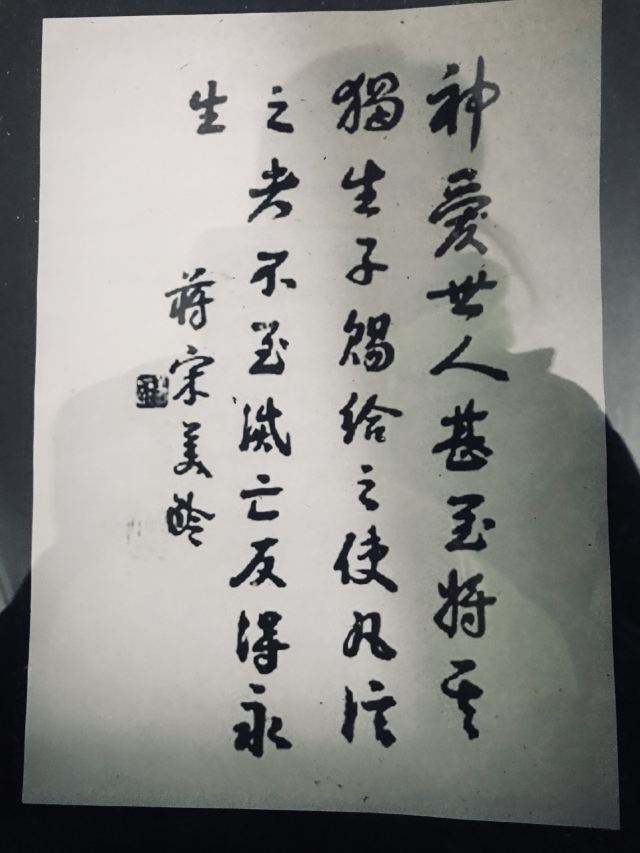 神愛世人甚至将其
獨生子賜給之使凡信
之者不至滅亡反得永
生
蒋宋美齡